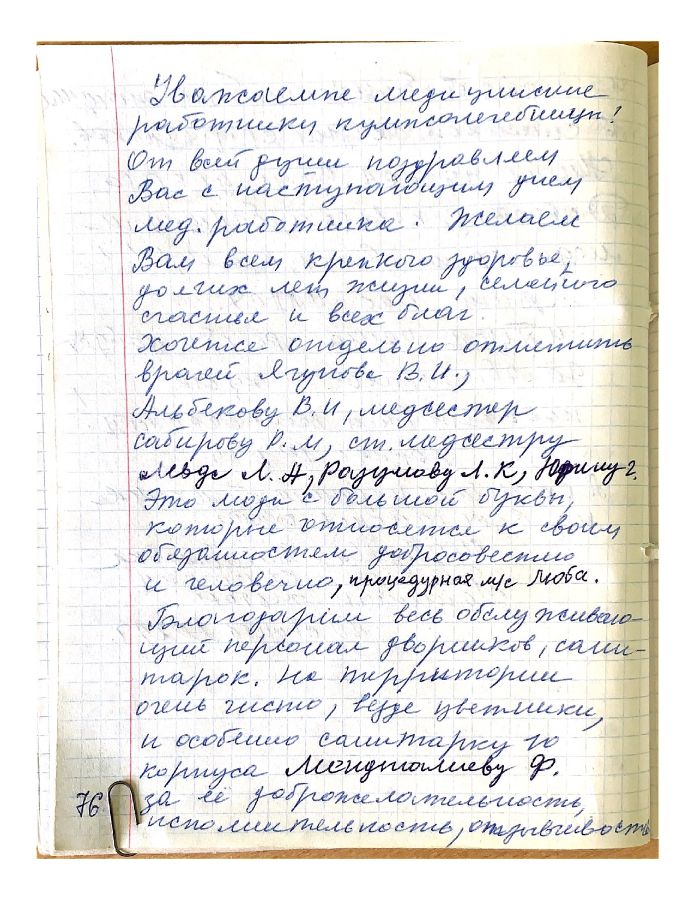 Уважаемые медицинские
работники кумжолечебницы!
От всей души поздравляем
Вас с наступающим днем
мед. работника. Желаем
Вам всем крепкого здоровье,
долгих лет жизни, семейного
счастья и всех благ.
Хочется отдельно отметить
врачей Ягупова В.И.,
Альбекову В.И, медсестер
сабирову Р.М, ст. медсестру
Л.А, Разумову Л.К, Юрину г.
Это люди с большой буквы,
которые относятся к своим
обязанностям добросовестно
и человечно, процедурная м/с Люба.
Благодарим весь обслуживаю-
щий персонал дворников, сани-
тарок. На территории
очень чисто, везде цветники,
и особенно санитарку 10
корпуса Менджалиеву Ф.
за её доброжелательность,
исполнительность, отзывчивость
76